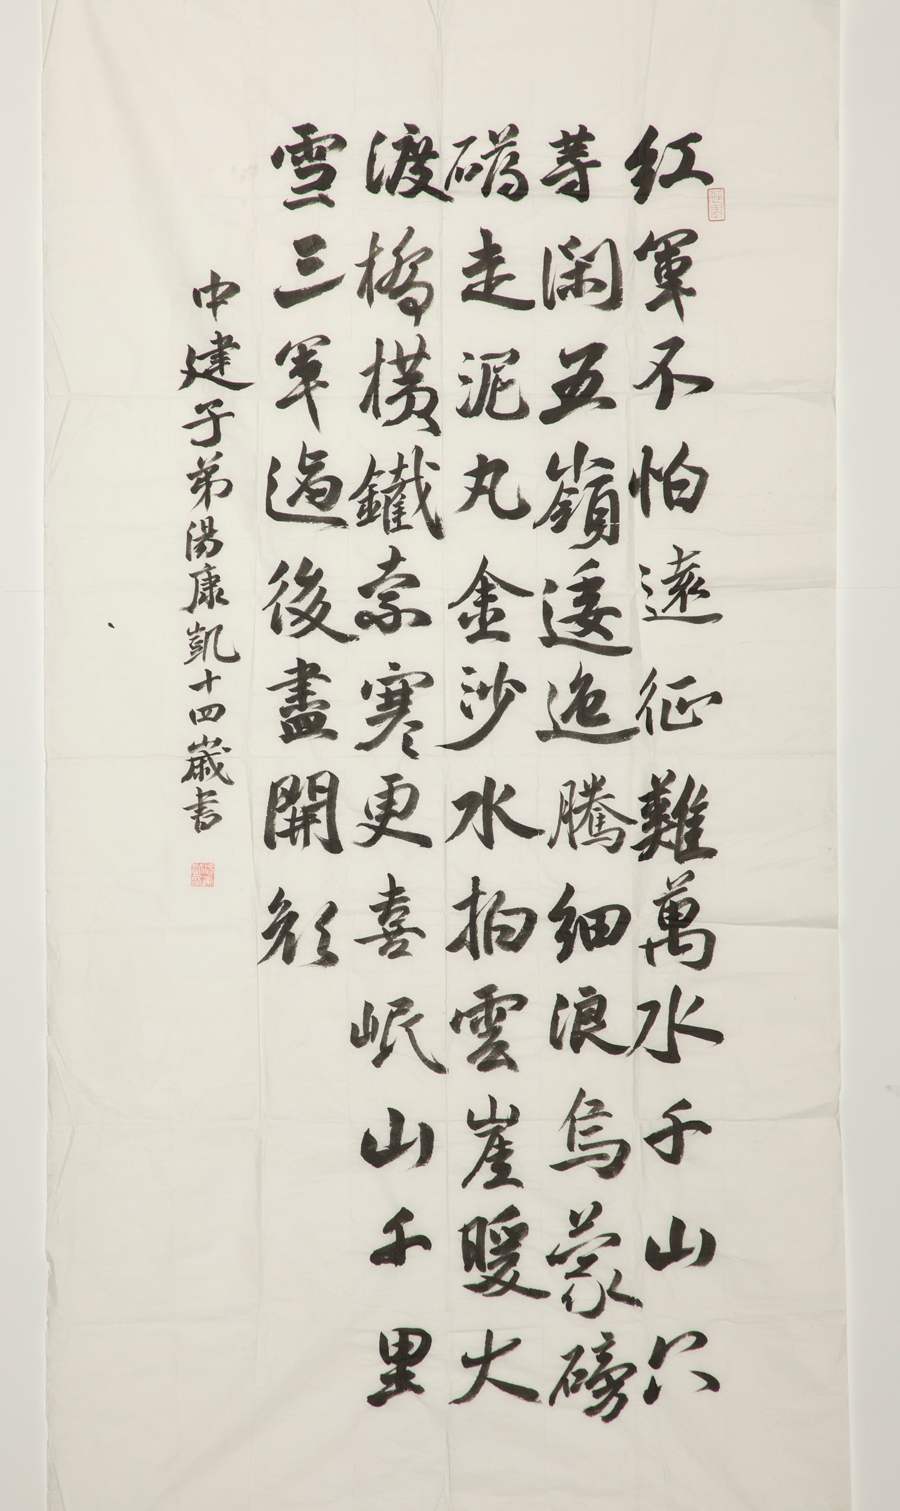 紅軍不怕遠征難萬水千山只
等閑五嶺逶迤騰細浪烏蒙磅
礴走泥丸金沙水拍雲崖暖大
渡橋橫鐵索寒更喜岷山千里
雪三軍過後盡開顏
中建子弟湯康凱十四歲書